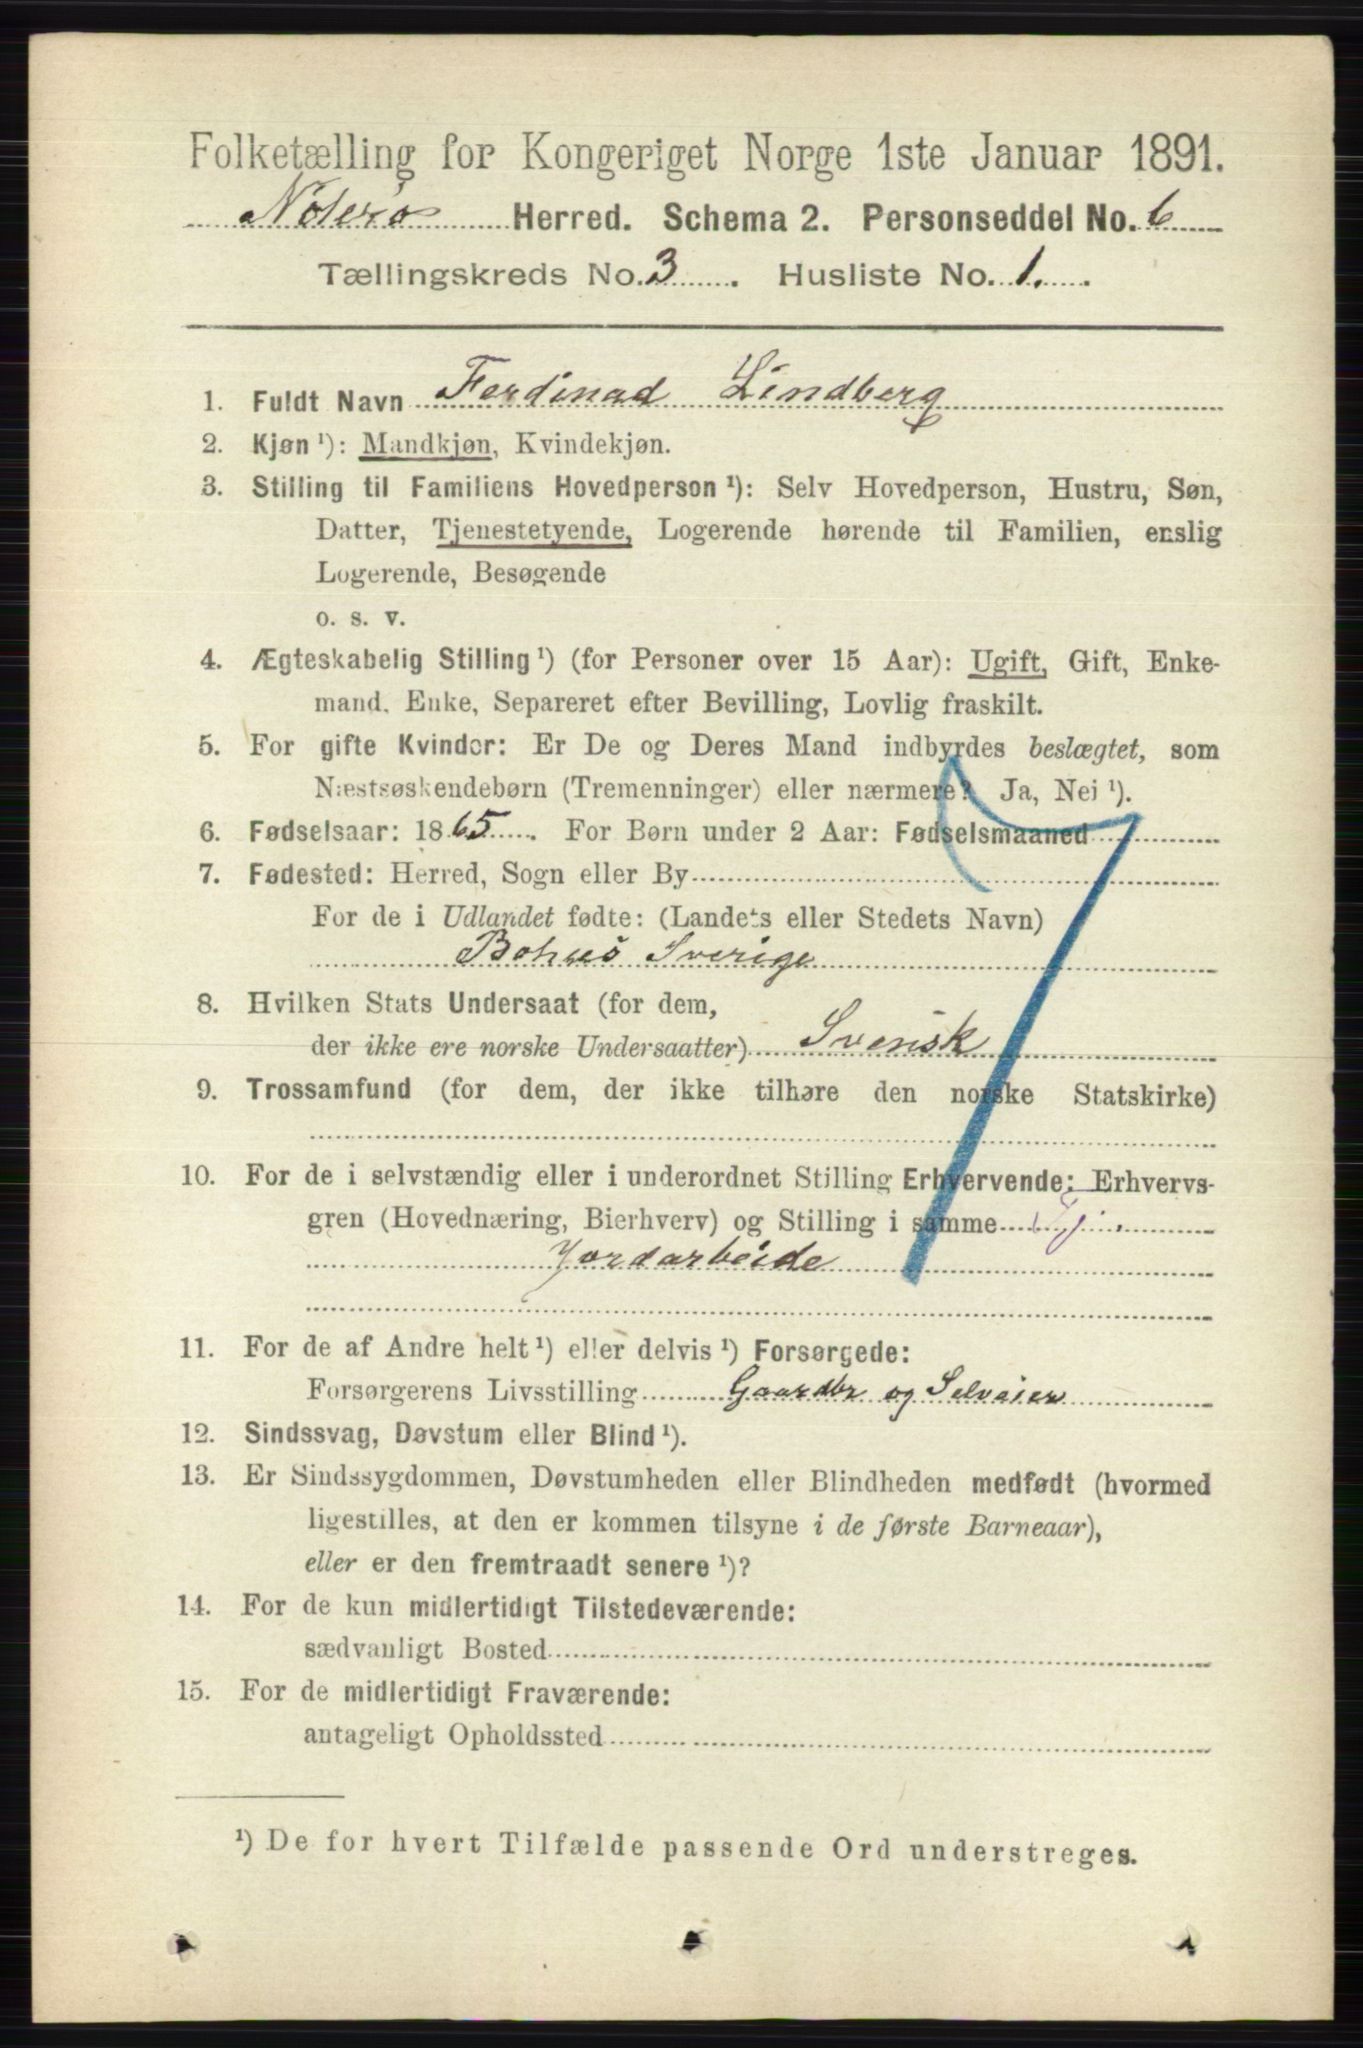 Folketælling for Kongeriget Norge 1ste Januar 1891.
Nøterø Herred. Schema 2. Personseddel No. 6
Tællingskreds No. 3 . Husliste No. 1. .
1. Fuldt Navn Ferdinad Lindberg
2. Kjøn ¹): Mandkjøn, Kvindekjøn.
3. Stilling til Familiens Hovedperson ¹): Selv Hovedperson, Hustru, Søn,
Datter, Tjenestetyende, Logerende hørende til Familien, enslig
Logerende, Besøgende
o. s. v.
4. Ægteskabelig Stilling ¹) (for Personer over 15 Aar): Ugift, Gift, Enke-
mand, Enke, Separeret efter Bevilling, Lovlig fraskilt.
5. For gifte Kvinder: Er De og Deres Mand indbyrdes beslægtet, som
Næstsøskendebørn (Tremenninger) eller nærmere? Ja, Nei ¹).
6. Fødselsaar: 1865 . For Børn under 2 Aar: Fødselsmaaned
7. Fødested: Herred, Sogn eller By
For de i Udlandet fødte: (Landets eller Stedets Navn)
Bohus Sverige
8. Hvilken Stats Undersaat (for dem,
der ikke ere norske Undersaatter) Svensk
9. Trossamfund (for dem, der ikke tilhøre den norske Statskirke)
10. For de i selvstændig eller i underordnet Stilling Erhvervende: Erhvervs-
gren (Hovednæring, Bierhverv) og Stilling i samme Tj.
Jordarbeide
11. For de af Andre helt ¹) eller delvis ¹) Forsørgede:
Forsørgerens Livsstilling Gaardbr og Selveier
12. Sindssvag, Døvstum eller Blind ¹).
13. Er Sindssygdommen, Døvstumheden eller Blindheden medfødt (hvormed
ligestilles, at den er kommen tilsyne i de første Barneaar),
eller er den fremtraadt senere ¹)?
14. For de kun midlertidigt Tilstedeværende:
sædvanligt Bosted
15. For de midlertidigt Fraværende:
antageligt Opholdssted
¹) De for hvert Tilfælde passende Ord understreges.